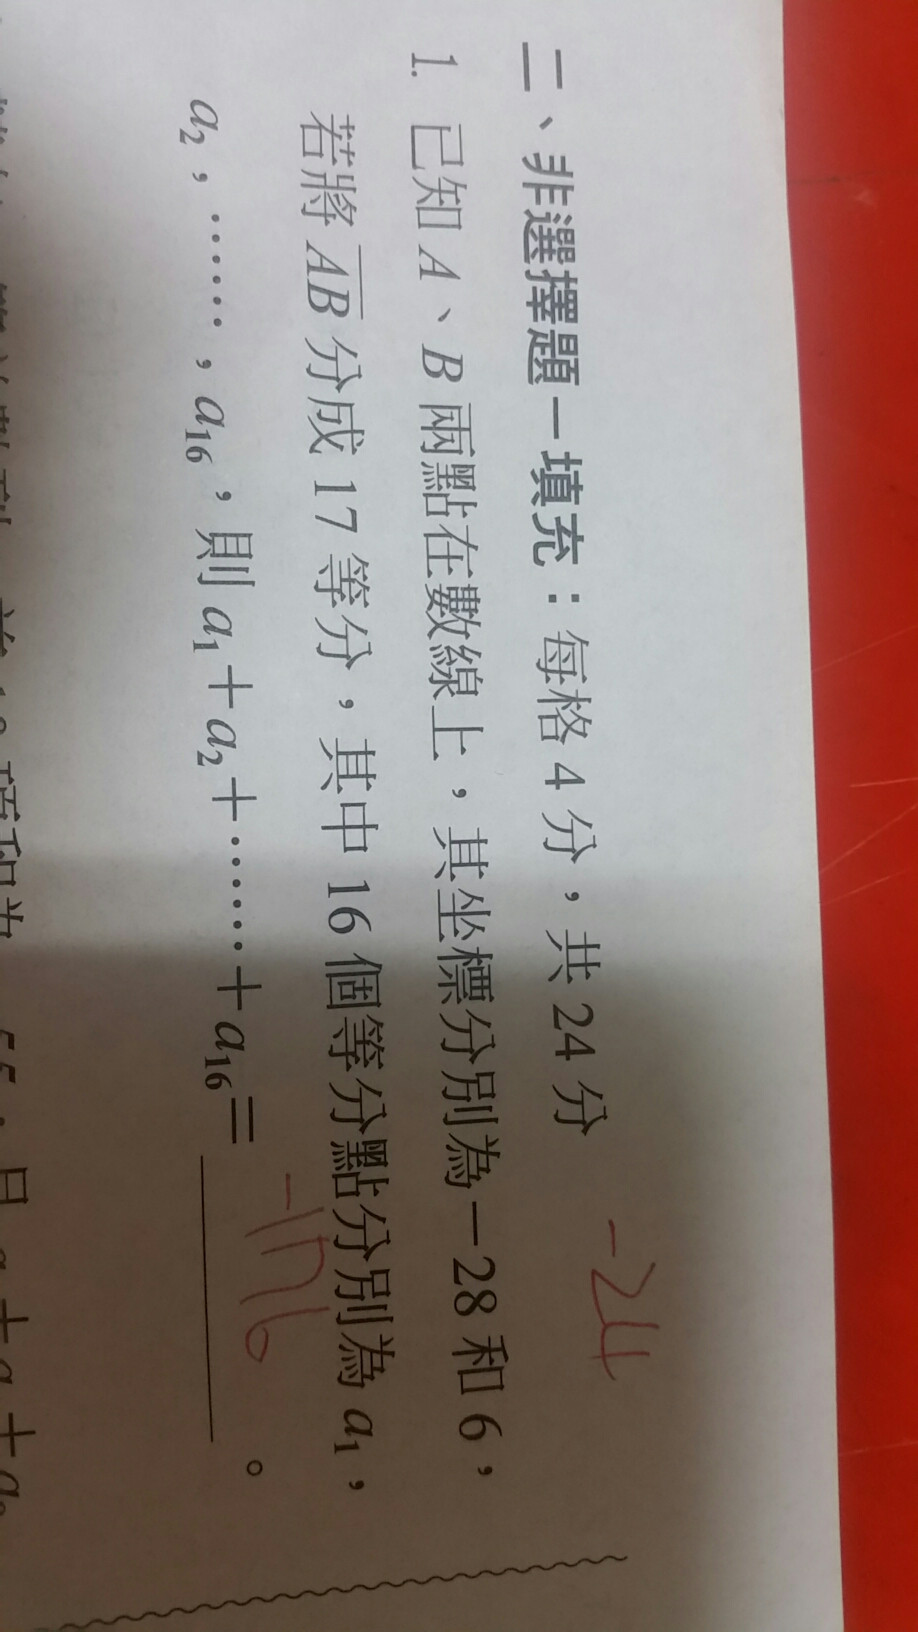 二、非選擇題－填充：每格 4 分，共 24 分
-24
1. 已知 A、B 兩點在數線上，其坐標分別為－28 和 6，
若將 AB 分成 17 等分，其中 16 個等分點分別為 a₁，
a₂，……，a₁₆，則 a₁＋a₂＋……＋a₁₆＝＿＿＿＿。
-176